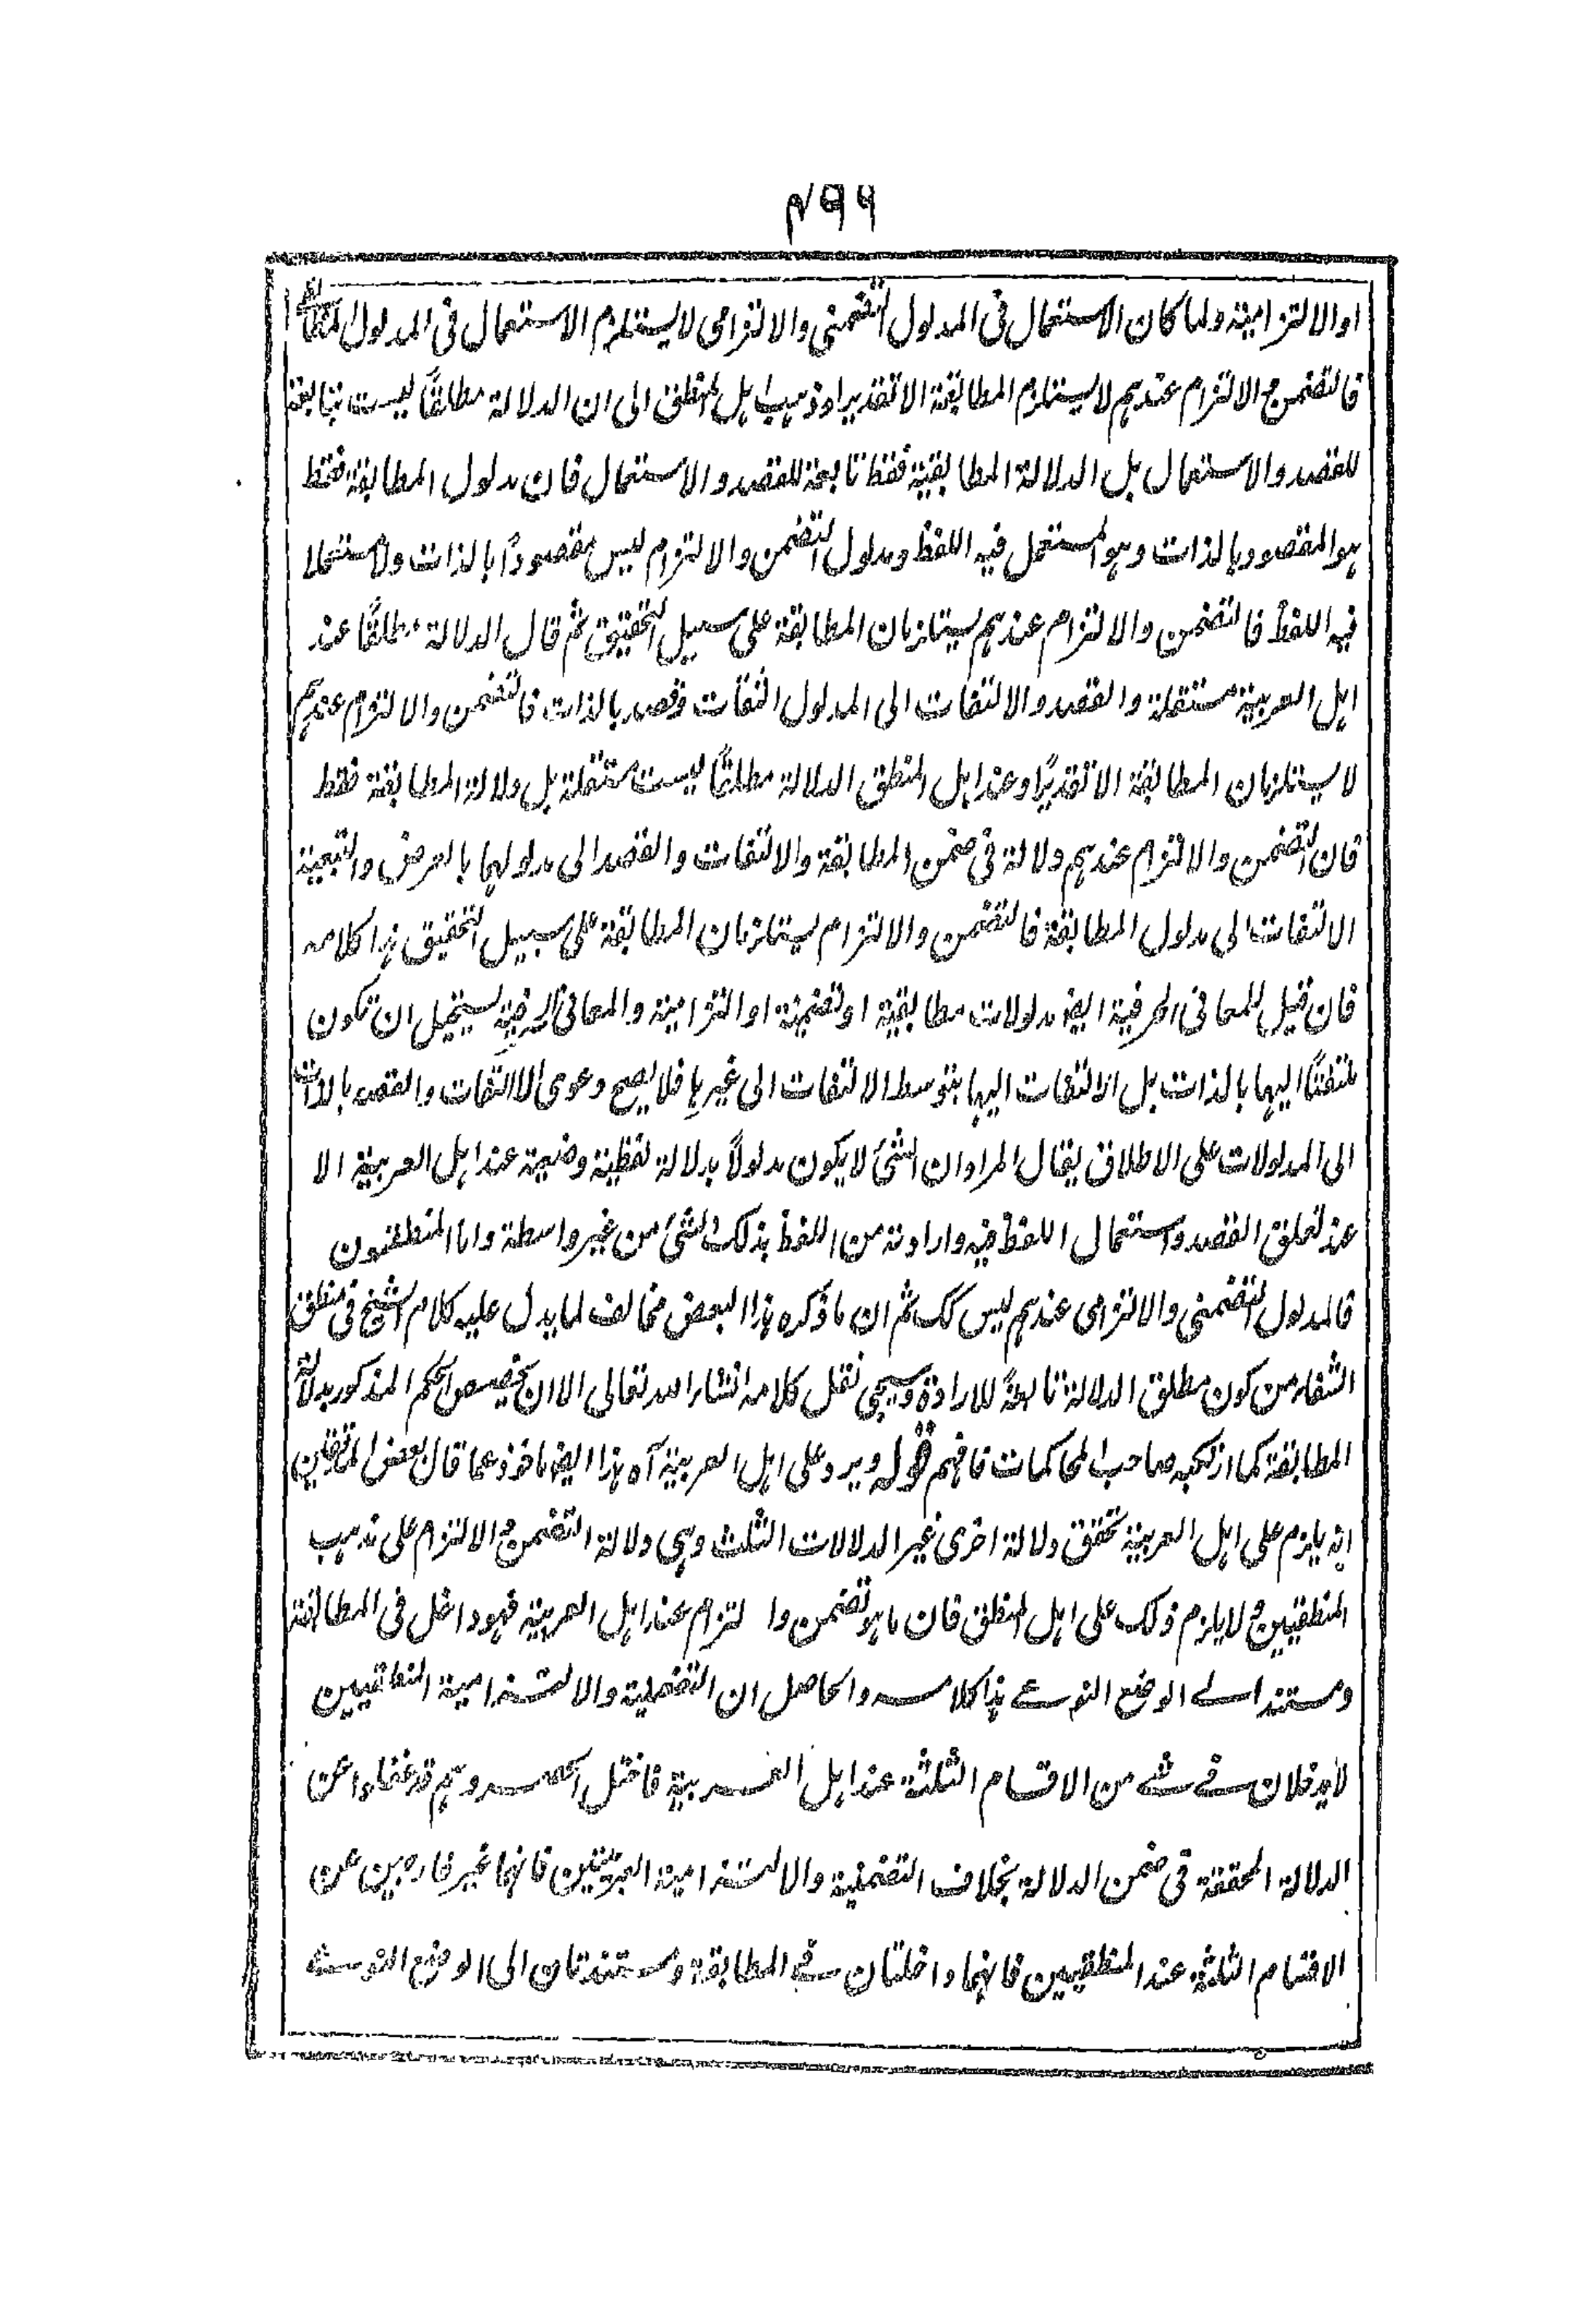 ۴۹۶
او الالتزامية ولما كان الاستعمال فى المدلول التضمنى والالتزامى لا يستلزم الاستعمال فى المدلول المطابقى
فالتضمن والالتزام عندهم لا يستلزم المطابقة الا تقديرا وذهب اهل المنطق الى ان الدلالة مطلقاً ليست بتابعة
للقصد والاستعمال بل الدلالة المطابقية فقط تابعة للقصد والاستعمال فان مدلول المطابقة فقط
هو المقصود بالذات وهو المستعمل فيه اللفظ ومدلول التضمن والالتزام ليس مقصوداً بالذات ولا مستعملا
فيه اللفظ فالتضمن والالتزام عندهم يستلزمان المطابقة على سبيل التحقيق ثم قال الدلالة مطلقًا عند
اهل العربية مستقلة والقصد والالتفات الى المدلول التفات وقصد بالذات فالتضمن والالتزام عندهم
لا يستلزمان المطابقة الا تقديرًا وعند اهل المنطق الدلالة مطلقاً ليست مستقلة بل دلالة المطابقة فقط
فان التضمن والالتزام عندهم دلالة فى ضمن المطابقة والالتفات والقصد الى مدلولهما بالعرض والتبعية
الالتفات الى مدلول المطابقة فالتضمن والالتزام يستلزمان المطابقة على سبيل التحقيق هذا كلامه
فان قيل للمعانى الحرفية ايضا مدلولات مطابقية او تضمنية او التزامية والمعانى الحرفية يستحيل ان تكون
ملتفتاً اليها بالذات بل الالتفات اليها بتوسط الالتفات الى غيرها فلا يصح دعوى الالتفات والقصد بالذات
الى المدلولات على الاطلاق يقال المراد ان الشئ لا يكون مدلولاً بدلالة لفظية وضعية عند اهل العربية الا
عند تعلق القصد واستعمال اللفظ فيه وارادته من اللفظ بذلك الشئ من غير واسطة واما المنطقيون
فالمدلول التضمنى والالتزامى عندهم ليس كك ثم ان ما ذكره هذا البعض مخالف لما يدل عليه كلام الشيخ فى منطق
الشفاء من كون مطلق الدلالة تابعةً للارادة وسيجى نقل كلامه انشاء الله تعالى الا ان يخصص الحكم المذكور بدلالة
المطابقة كما ارتكبه صاحب المحاكمات فافهم قوله ويرد على اهل العربية آه هذا ايضا ماخوذ عما قال بعض المتاخرين
انه يلزم على اهل العربية تحقق دلالة اخرى غير الدلالات الثلث وهى دلالة التضمن والالتزام على مذهب
المنطقيين ولا يلزم ذلك على اهل المنطق فان ما هو تضمن وا لتزام عند اهل العربية فهو داخل فى المطابقة
ومستند الے الوضع النوعے هذا كلامه والحاصل ان التضمنية والالتزامية المنطقيين
لا يدخلان فے شے من الاقسام الثلثة عند اهل العربية فاختل الحصر وهم قد غفلوا عن
الدلالة المحققة فى ضمن الدلالة بخلاف التضمنية والالتزامية العربيتين فانهما غير خارجين عن
الاقسام الثلثة عند المنطقيين فانهما داخلتان فے المطابقة ومستندتان الى الوضع النوعے